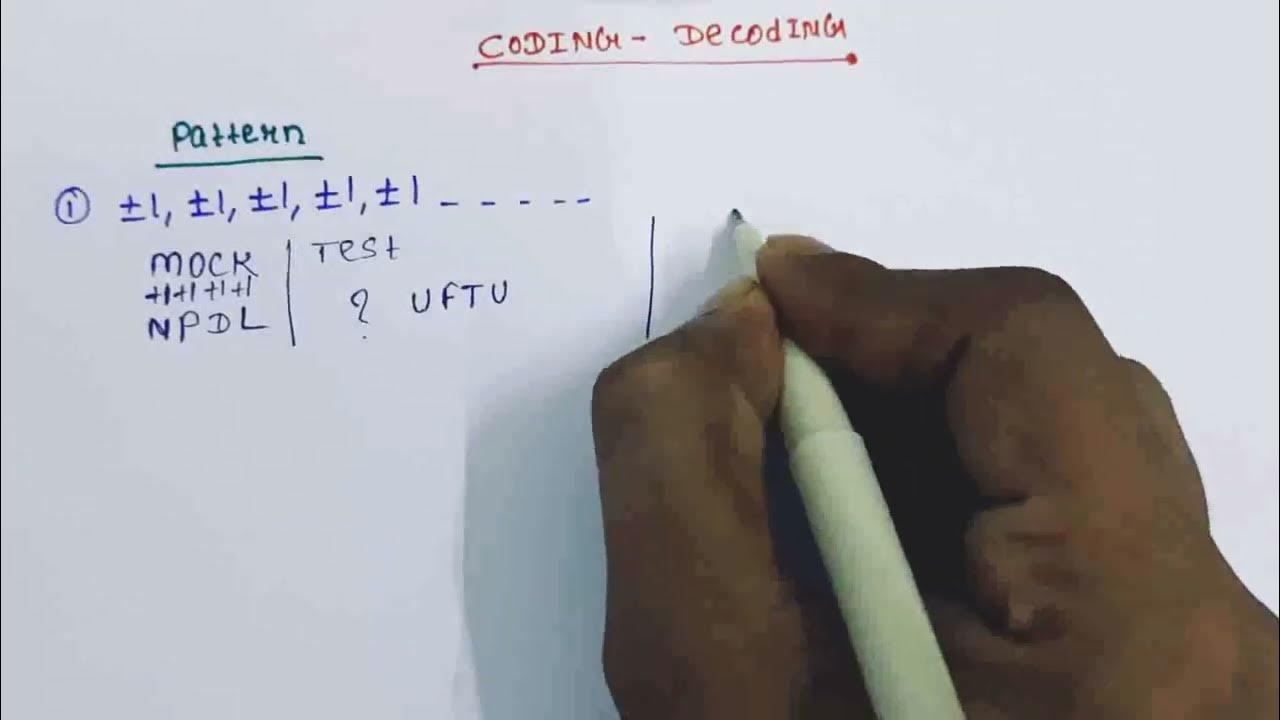 CODING - DecodING
Pattern
① ±1, ±1, ±1, ±1, ±1 - - - - -
MOCK | Test
+1 +1 +1 +1
NPDL | ? UFTU